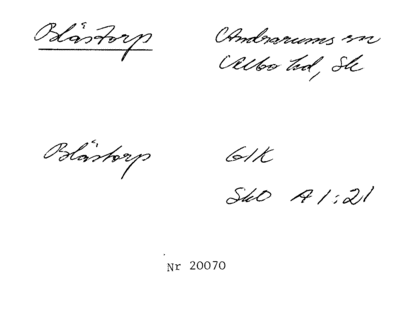 Blåstorp
Andrarums sn
Albo hd, Sk
Blåstorp
GIK
SkO A1:21
Nr 20070